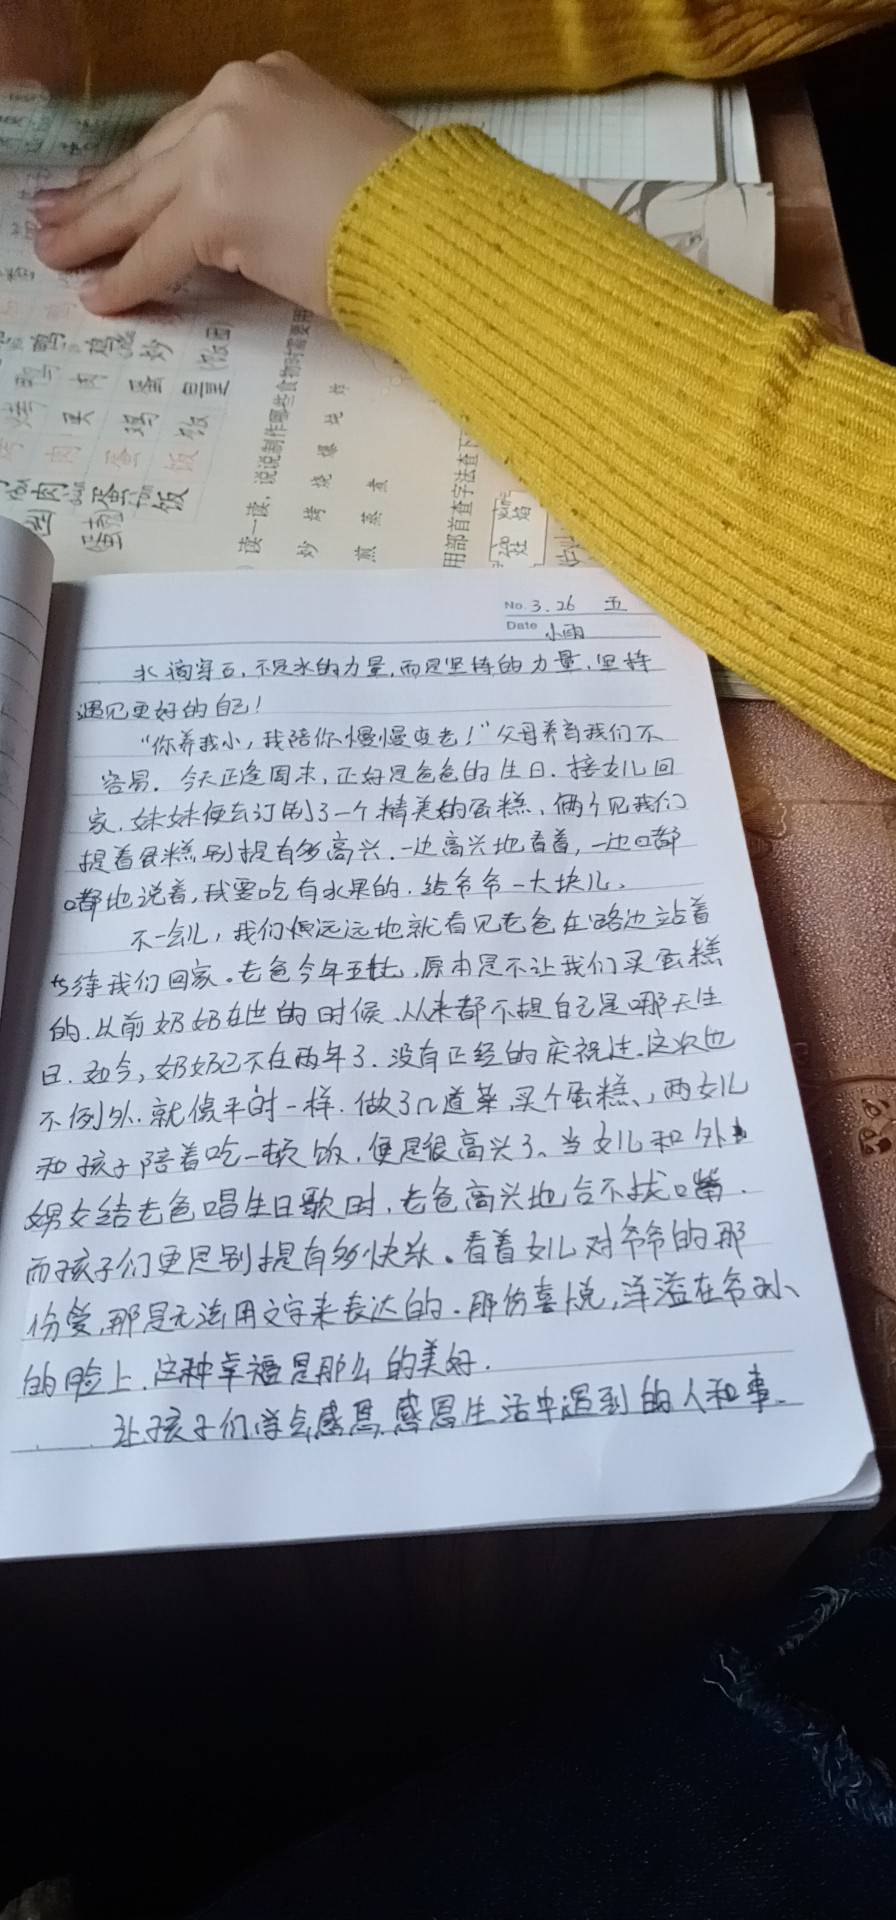 炒 烤 烧 爆 炖 炸
煎 蒸 煮
读一读，说说制作哪些食物时需要用
用部首查字法查下
No. 3.26 五
Date 小雨
水滴穿石，不是水的力量，而是坚持的力量，坚持
遇见更好的自己！
“你养我小，我陪你慢慢变老！”父母养育我们不
容易．今天正逢周末，正好是爸爸的生日．接女儿回
家，妹妹便去订制了一个精美的蛋糕，俩个见我们
提着蛋糕别提有多高兴．一边高兴地看着，一边嘟
嘟地说着，我要吃有水果的．给爷爷一大块儿．
不一会儿，我们便远远地就看见老爸在路边站着
等待我们回家。老爸今年五十七，原本是不让我们买蛋糕
的．从前奶奶在世的时候，从来都不提自己是哪天生
日．如今，奶奶已不在两年了．没有正经的庆祝过．这次也
不例外．就像平时一样．做了几道菜，买个蛋糕，两女儿
和孩子陪着吃一顿饭，便是很高兴了。当女儿和外
甥女给老爸唱生日歌时，老爸高兴地合不拢嘴．
而孩子们更是别提有多快乐。看着女儿对爷爷的那
份爱，那是无法用文字来表达的．那份喜悦，洋溢在爷孙
的脸上．这种幸福是那么的美好．
让孩子们学会感恩，感恩生活中遇到的人和事．